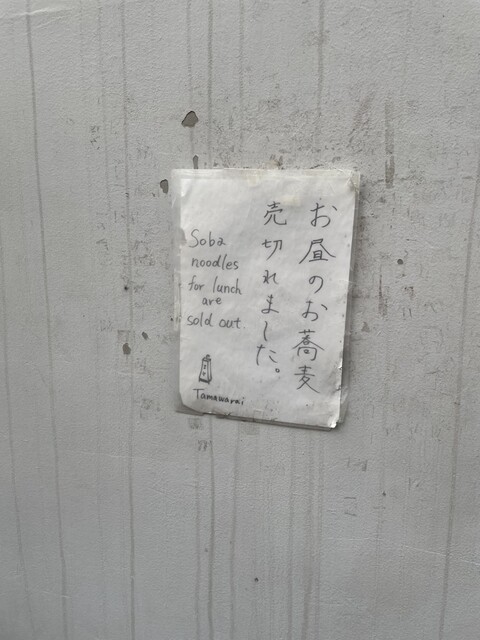 お昼のお蕎麦
売切れました。
Soba
noodles
for lunch
are
sold out
Tamawarai